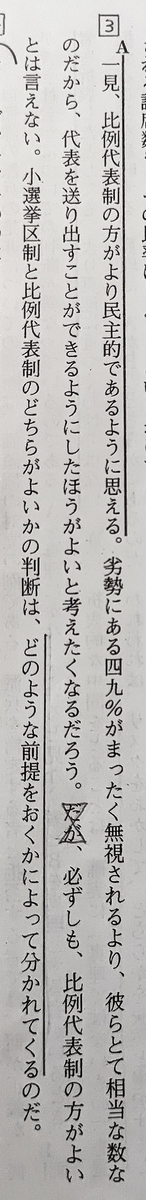 3
A
一見、比例代表制の方がより民主的であるように思える。劣勢にある四九％がまったく無視されるより、彼らとて相当な数な
のだから、代表を送り出すことができるようにしたほうがよいと考えたくなるだろう。だが、必ずしも、比例代表制の方がよい
とは言えない。小選挙区制と比例代表制のどちらがよいかの判断は、どのような前提をおくかによって分かれてくるのだ。